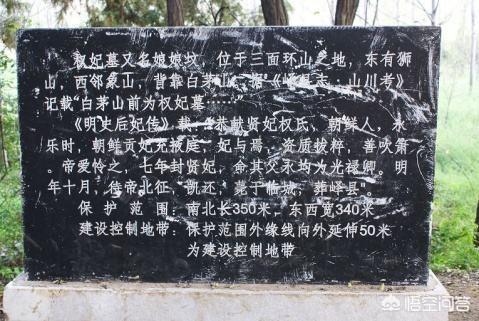 权妃墓又名娘娘坟，位于三面环山之地，东有狮
山，西邻象山，背靠白茅山。据《峄县志·山川考》
记载“白茅山前为权妃墓……”
《明史后妃传》载：“恭献贤妃权氏，朝鲜人，永
乐时，朝鲜贡妃充掖庭，妃与焉，资质拔粹，善吹箫
。帝爱怜之，七年封贤妃，命其父永均为光禄卿。明
年十月，侍帝北征，凯还，薨于临城，葬峄县”
保护范围：南北长350米，东西宽340米
建设控制地带：保护范围外缘线向外延伸50米
为建设控制地带
悟空问答